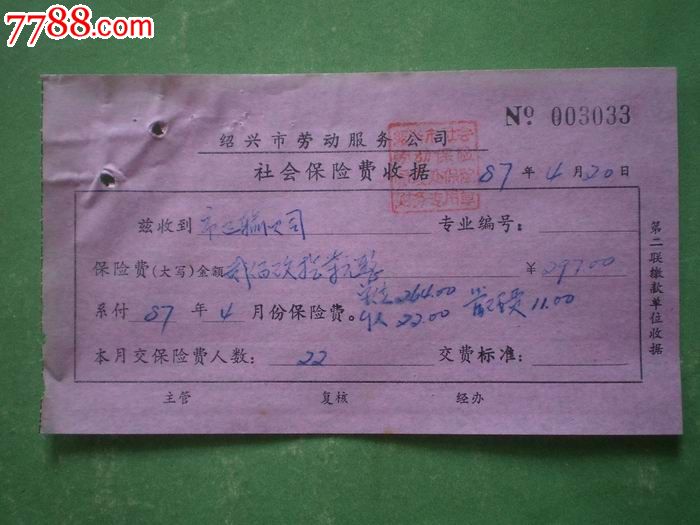 7788.com
№ 003033
绍兴市劳动服务公司
社会保险费收据 87年4月20日
兹收到 市运输公司 专业编号：
保险费(大写)金额 贰佰玖拾柒元整 ￥297.00
单位264.00 管理费11.00
系付87年4月份保险费。 22.00
本月交保险费人数： 22 交费标准：
主管 复核 经办
第二联缴款单位收据